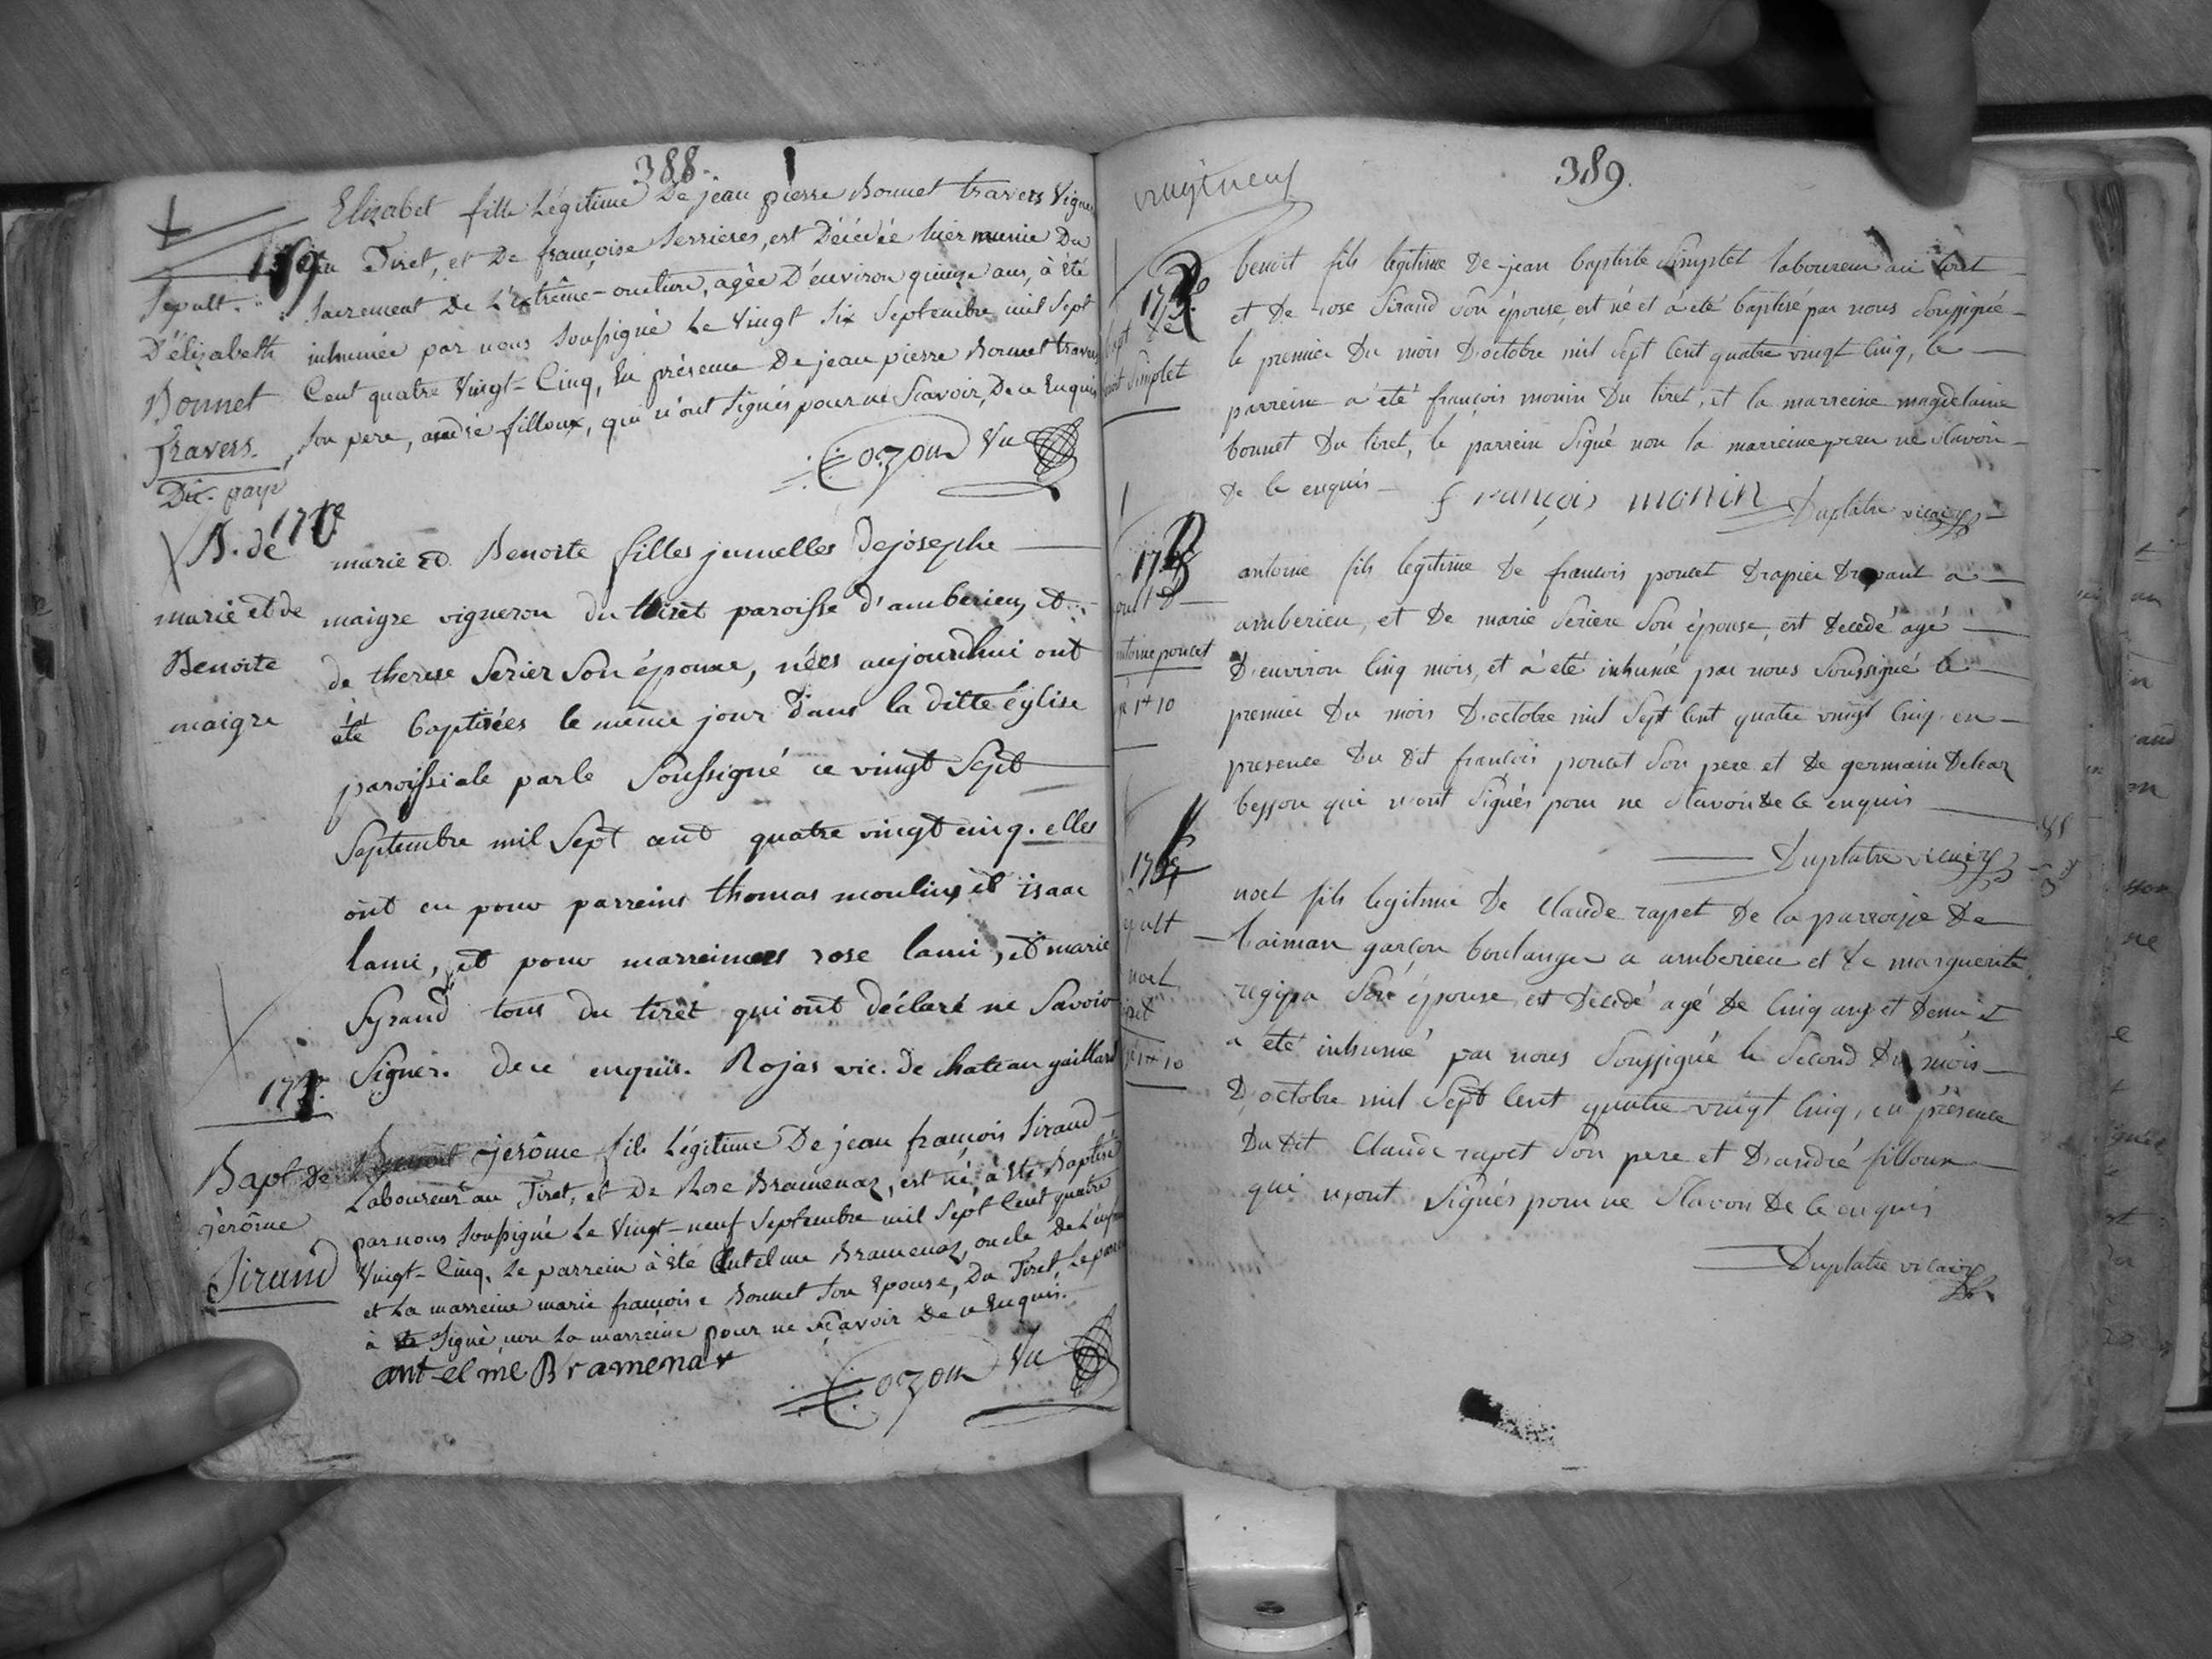 388.
Elizabet fille Légitime De jean pierre Bonnet travers Vigner
au Tiret, et De françoise Serrieres, est Décédée hier munie Du
Sacrement De L'extrême-onction, agée D'environ quinze ans, à été
inhumée par nous soussigné Le Vingt Six Septembre mil Sept
Cent quatre Vingt-Cinq, En présence De jean pierre Bonnet travers
Son pere, andré filloux, qui n'ont Signés pour ne Scavoir, De ce Enquis
Cozon Vic
169
Sepult.
D'élizabeth
Bonnet
Travers.
170
B. de
marie et de
Benoite
maigre
marie et Benoite filles jumelles de josephe
maigre vigneron du tiret paroisse d'amberieu, et
de therese Serier Son épouse, nées aujourdhui ont
été baptisées le même jour dans la ditte église
paroissiale par le Soussigné ce vingt Sept
Septembre mil Sept cent quatre vingt cinq. elles
ont eu pour parreins thomas moulin et isaac
lami, et pour marreines rose lami, et marie
Syrand tous du tiret qui ont déclaré ne Savoir
Signer. de ce enquis. Rojas vic. de chateau gaillard
171.
Bapt de
jérôme
Sirand
jerôme fils Légitime De jean françois Sirand
Laboureur au Tiret, et De Rose Bramenaz, est né, à été Baptisé
par nous soussigné Le Vingt-neuf Septembre mil Sept Cent quatre
Vingt-Cinq. Le parrein à été Antelme Bramenaz, oncle De L'enfant
et La marreine marie françoise Bonnet Son Epouse, Du Tiret, Le parrein
à Signé, non La marreine pour ne Scavoir De ce Enquis.
antelme Bramenas
Cozon Vic
vingt neuf
389.
172
Bapt de
benoit Simplet
benoit fils legitime De jean baptiste Simplet laboureur au tiret
et De rose Sirand Son épouse, est né et à été baptisé par nous Soussigné
le premier Du mois D'octobre mil Sept Cent quatre vingt Cinq, le
parreine a été françois monin Du tiret, et la marreine magdelaine
bonnet Du tiret, le parrein Signé non la marreine pour ne Scavoir
De Ce enquis
françois monin Duplatre vicaire
173
antoine poncet
antoine fils legitime De francois poncet Drapier Devant a
amberieu, et De marie Seriere Son épouse, est Decedé agé
D'environ Cinq mois, et à été inhumé par nous Soussigné le
premier Du mois D'octobre mil Sept Cent quatre vingt Cinq. en
presence Du Dit francois poncet Son pere et De germain
besson qui n'ont Signés pour ne Scavoir De Ce enquis
Duplatre vicaire
174
noel
noel fils legitime De Claude rapet De la parroisse De
garçon boulanger a amberieu et De marguerite
Son épouse, est Decedé agé De Cinq ans et Demi et
a été inhumé par nous Soussigné le Second Du mois
D'octobre mil Sept Cent quatre vingt Cinq, en présence
Du Dit Claude rapet Son pere et D'andré filloux
qui n'ont Signés pour ne Scavoir De Ce enquis
Duplatre vicaire